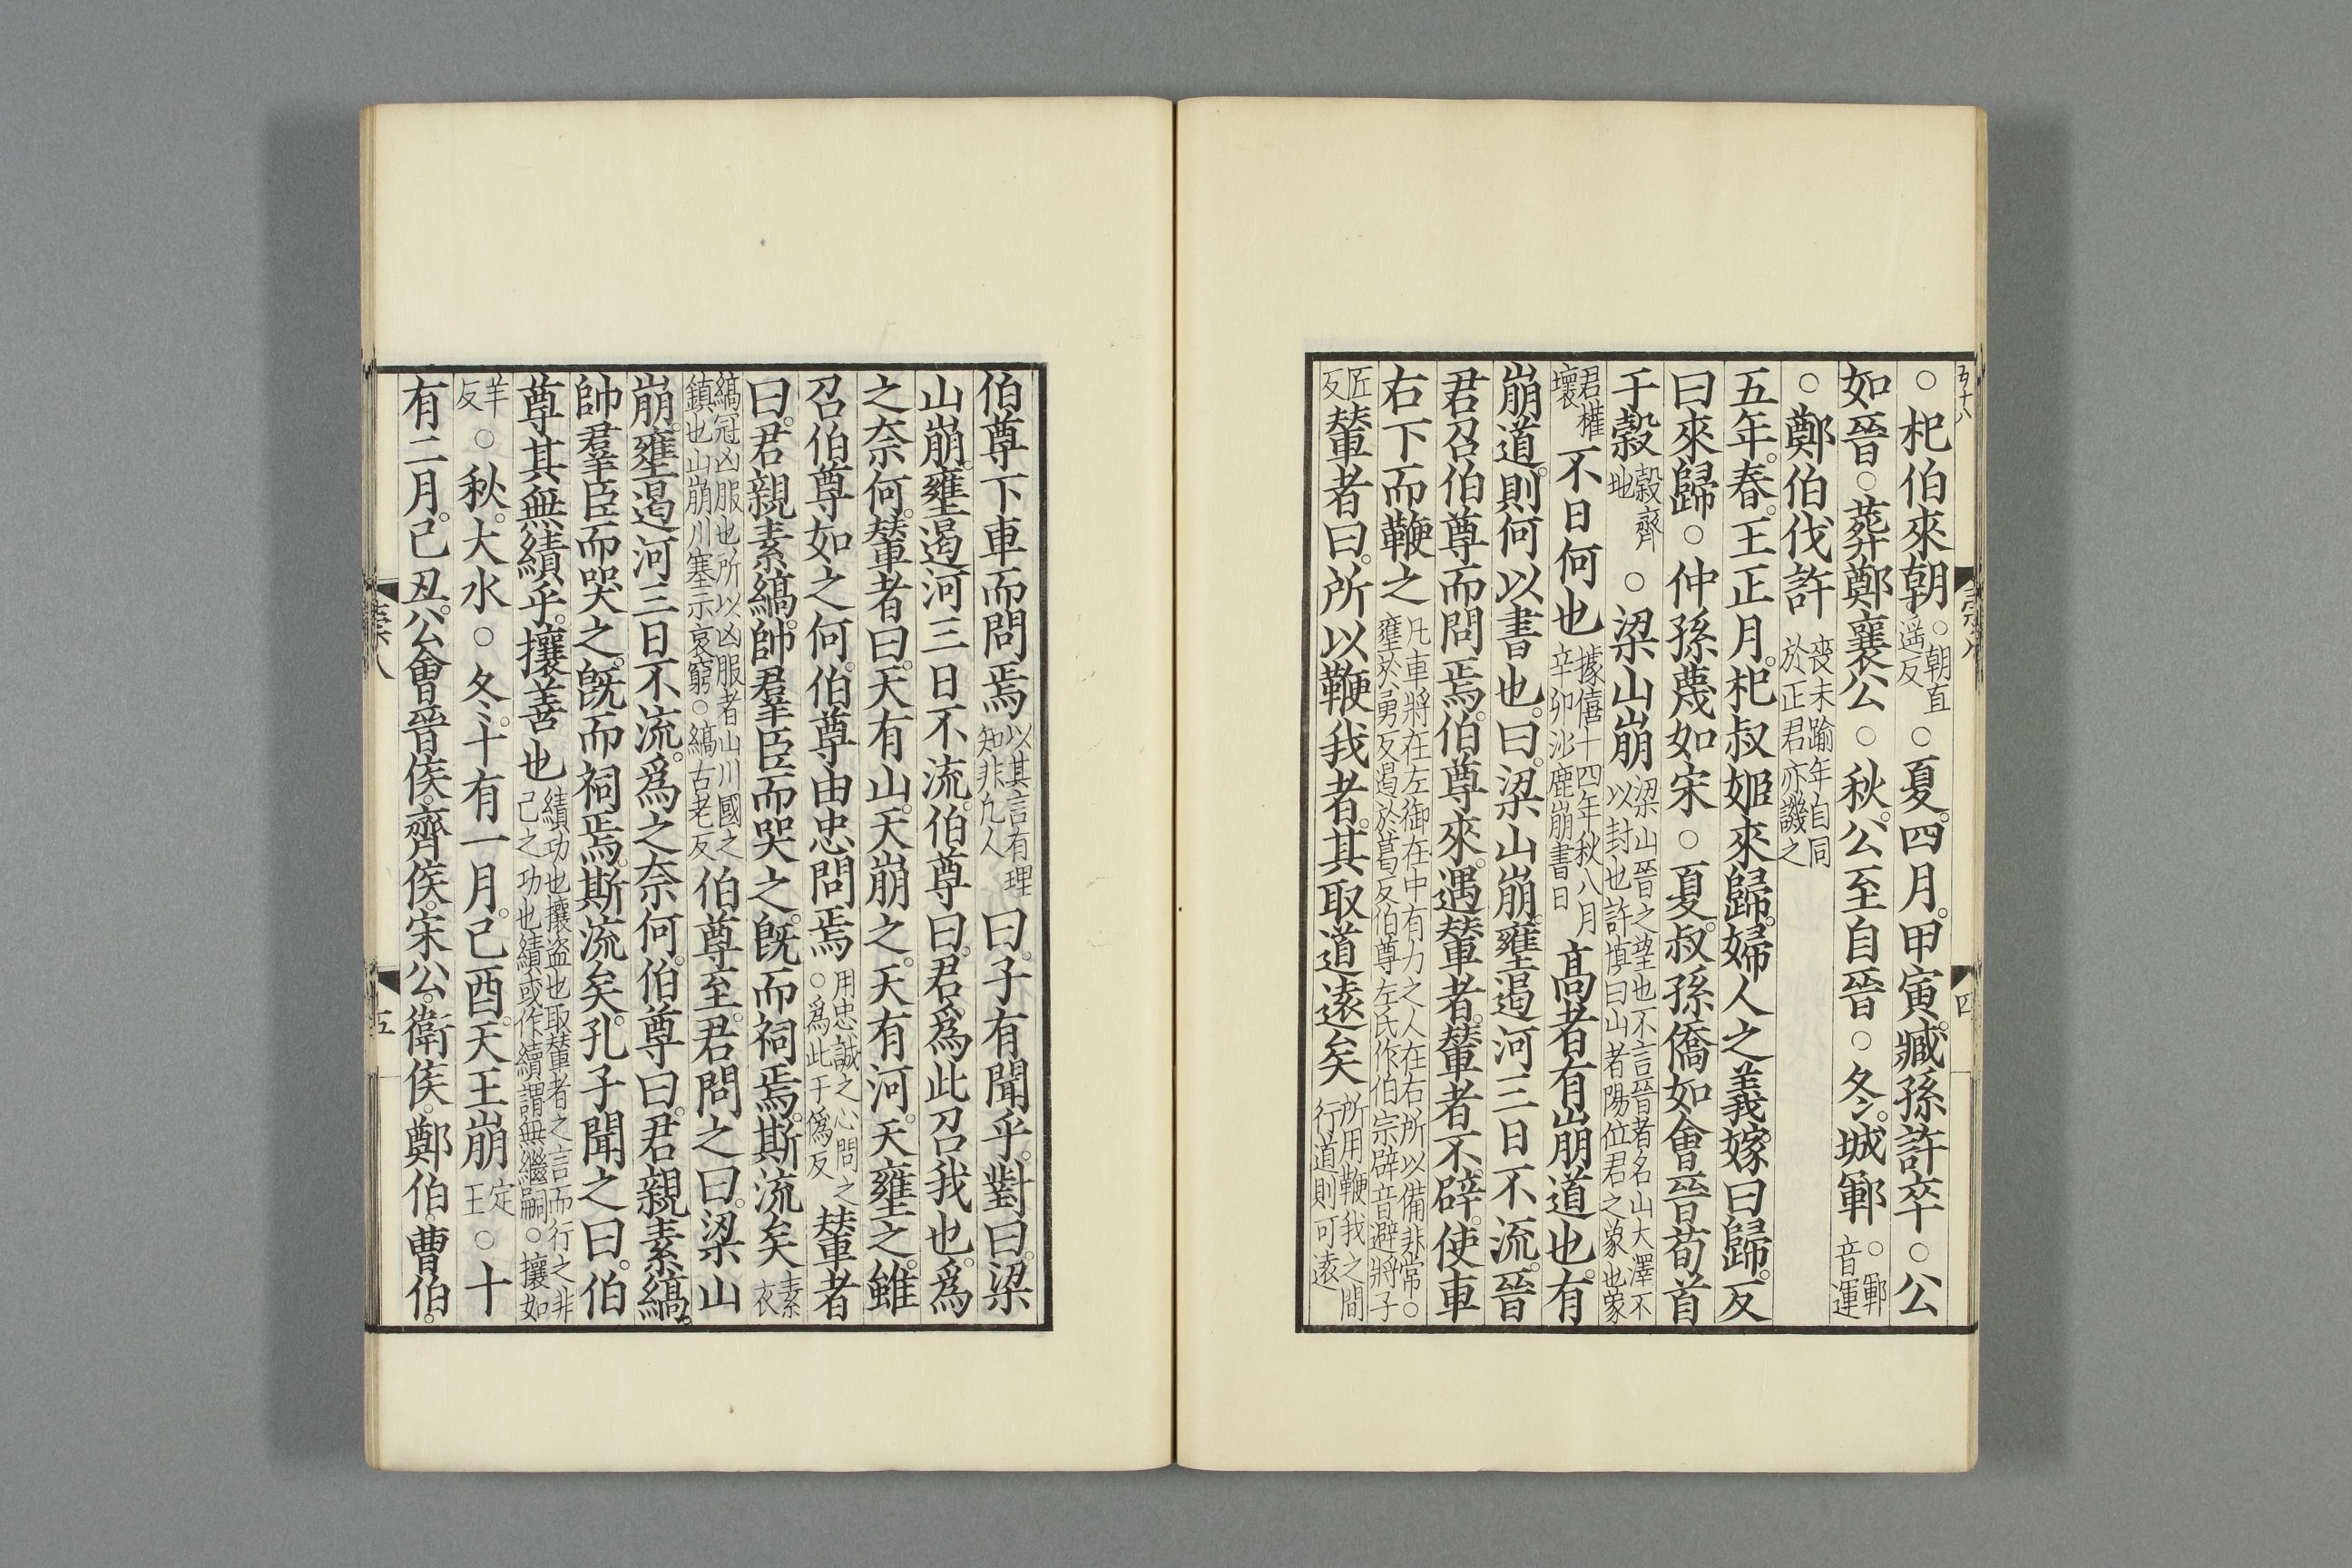 ○杞伯來朝。○朝直遥反○夏。四月。甲寅。臧孫許卒○公
如晉○葬鄭襄公○秋。公至自晉○冬。城鄆○鄆音運
○鄭伯伐許喪未踰年自同於正君亦譏之
五年。春。王正月。杞叔姬來歸。婦人之義。嫁曰歸。反
曰來歸○仲孫蔑如宋○夏。叔孫僑如會晉荀首
于穀穀齊地○梁山崩梁山晉之望也不言晉者名山大澤不以封也許慎曰山者陽位君之象也象
君權壞不日何也據僖十四年秋八月辛卯沙鹿崩書日高者有崩道也。有
崩道。則何以書也。曰。梁山崩。壅遏河三日不流。晉
君召伯尊而問焉。伯尊來。遇輦者。輦者不辟。使車
右下而鞭之凡車將在左御在中有力之人在右所以備非常○壅於勇反遏於葛反伯尊左氏作伯宗辟音避將子
匠反輦者曰。所以鞭我者。其取道遠矣所用鞭我之間行道則可遠
四
伯尊下車而問焉以其言有理知非凡人曰。子有聞乎。對曰。梁
山崩。壅遏河三日不流。伯尊曰。君爲此召我也。爲
之奈何。輦者曰。天有山。天崩之。天有河。天壅之。雖
召伯尊如之何。伯尊由忠問焉用忠誠之心問之○爲此于僞反輦者
曰。君親素縞。帥羣臣而哭之。旣而祠焉。斯流矣素衣
縞冠凶服也所以凶服者山川國之鎮也山崩川塞示哀窮○縞古老反伯尊至。君問之曰。梁山
崩。壅遏河三日不流。爲之奈何。伯尊曰。君親素縞。
帥羣臣而哭之。旣而祠焉。斯流矣。孔子聞之曰。伯
尊其無績乎。攘善也績功也攘盗也取輦者之言而行之非己之功也績或作續謂無繼嗣○攘如
羊反○秋。大水○冬。十有一月。己酉。天王崩定王○十
有二月。己丑。公會晉侯。齊侯。宋公。衛侯。鄭伯。曹伯。
五